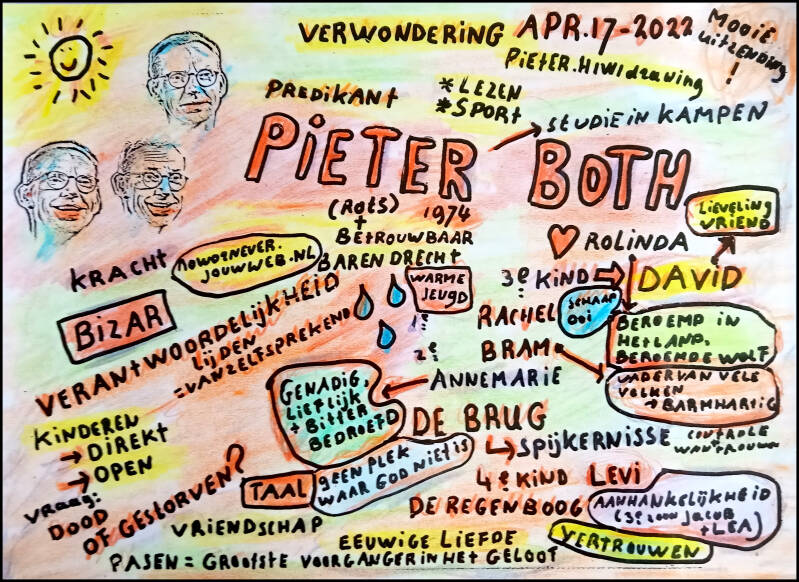 VERWONDERING APR.17-2022
MOOIE
UITZENDING
!
PIETER.HIWIdrawing
PREDIKANT
* LEZEN
* SPORT
STUDIE IN KAMPEN
PIETER BOTH
(ROTS) 1974
+
BETROUWBAAR
BARENDRECHT
LIEVELING
VRIEND
ROLINDA
KRACHT
nowornever.
jouwweb.nl
WARME
JEUGD
3e KIND
DAVID
BIZAR
VERANTWOORDELIJKHEID
LIJDEN
=VANZELFSPREKEND
1e
RACHEL
SCHAAP
OOI
BEROEMD IN
HET LAND,
BEROEMDE WOLF
2e
BRAM
VADER VAN VELE
VOLKEN
BARMHARTIG
ANNEMARIE
GENADIG,
LIEFLIJK
+ BITTER
BEDROEFD
DE BRUG
SPIJKERNISSE
CONTROLE
WANTROUWEN
KINDEREN
DIREKT
OPEN
VRAAG:
DOOD
OF GESTORVEN?
TAAL
GEEN PLEK
WAAR GOD NIET IS
4e KIND LEVI
DE REGENBOOG
AANHANKELIJKHEID
(3e ZOON JACOB
+ LEA)
VRIENDSCHAP
EEUWIGE LIEFDE
VERTROUWEN
PASEN = GROOTSTE VOORGANGER IN HET GELOOF